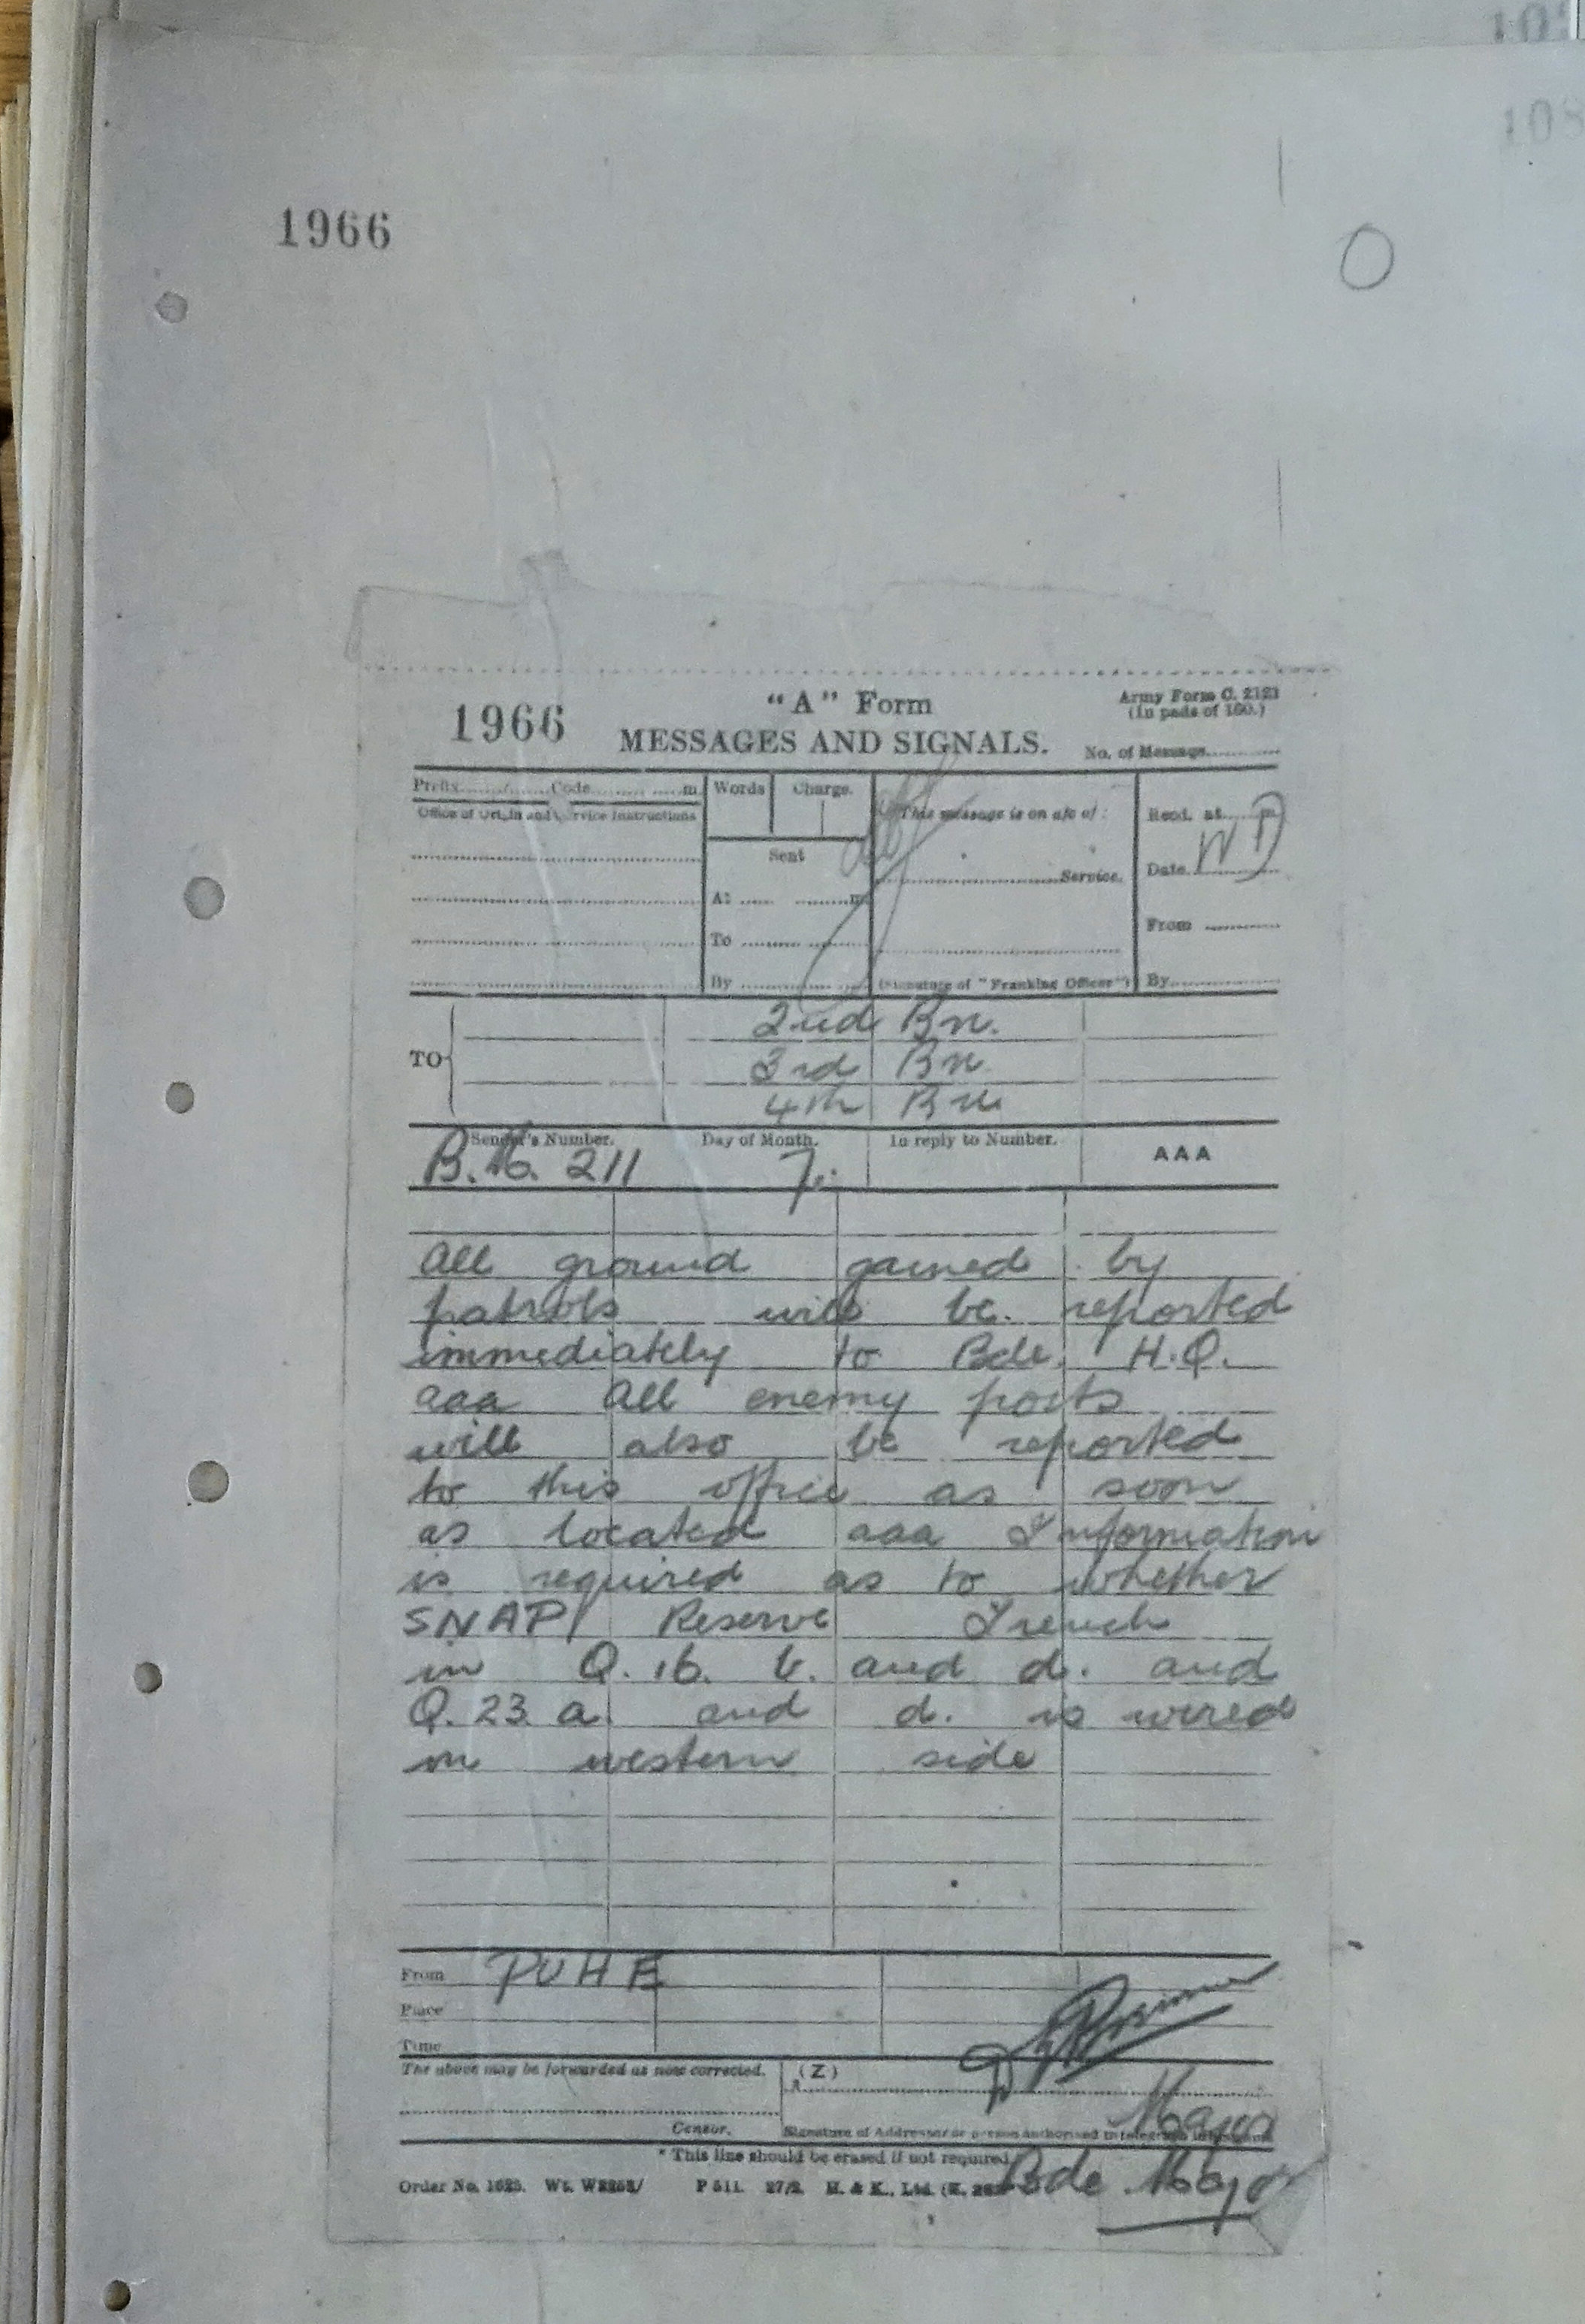 108
1966
"A" Form
Army Form C. 2121
(in pads of 100.)
1966
MESSAGES AND SIGNALS.
No. of Message
Prefix Code m
Words Charge.
This message is on a/c of :
Recd. at m
Office of Origin and Service Instructions
Sent
Service.
Date
At m
To
From
By
(Signature of "Franking Officer")
By
TO
2nd Bn.
3rd Bn
4th Bn
Sender's Number.
Day of Month.
In reply to Number.
AAA
B.M. 211
7
All ground gained by
patrols will be reported
immediately to Bde. H.Q.
aaa All enemy posts
will also be reported
to this office as soon
as located aaa Information
is required as to whether
SNAP Reserve Trench
in Q.16. b. and d. and
Q.23. a and d. is wired
on western side
From PUHE
Place
Time
The above may be forwarded as now corrected.
(Z)
Major
Censor.
Signature of Addressor or person authorised to telegraph in his name
* This line should be erased if not required
Order No. 1625. Wt. W3253/ P 511. 27/2. H. & K., Ltd.
Bde Major